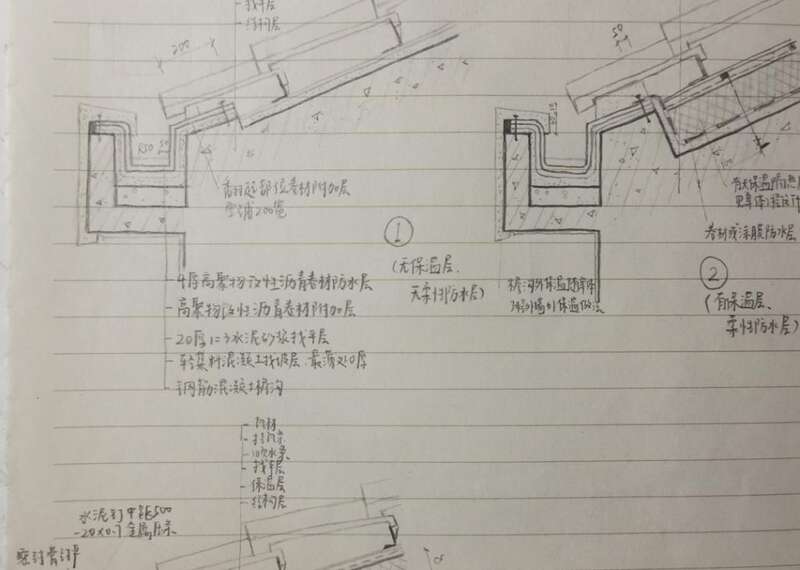 找平层
结构层
200
50
R50 50
卷材防水层
此部位卷材附加层
空铺200宽
有无保温层
卷材或涂膜防水层
①
(无保温层、
无柔性防水层)
②
(有保温层、
柔性防水层)
檐沟外保温
4厚高聚物改性沥青卷材防水层
高聚物改性沥青卷材附加层
20厚1:3水泥砂浆找平层
轻集料混凝土找坡层,最薄处20厚
钢筋混凝土檐沟
挂瓦条
顺水条
找平层
保温层
结构层
水泥钉中距500
-20×0.7金属压条
密封膏封严
α